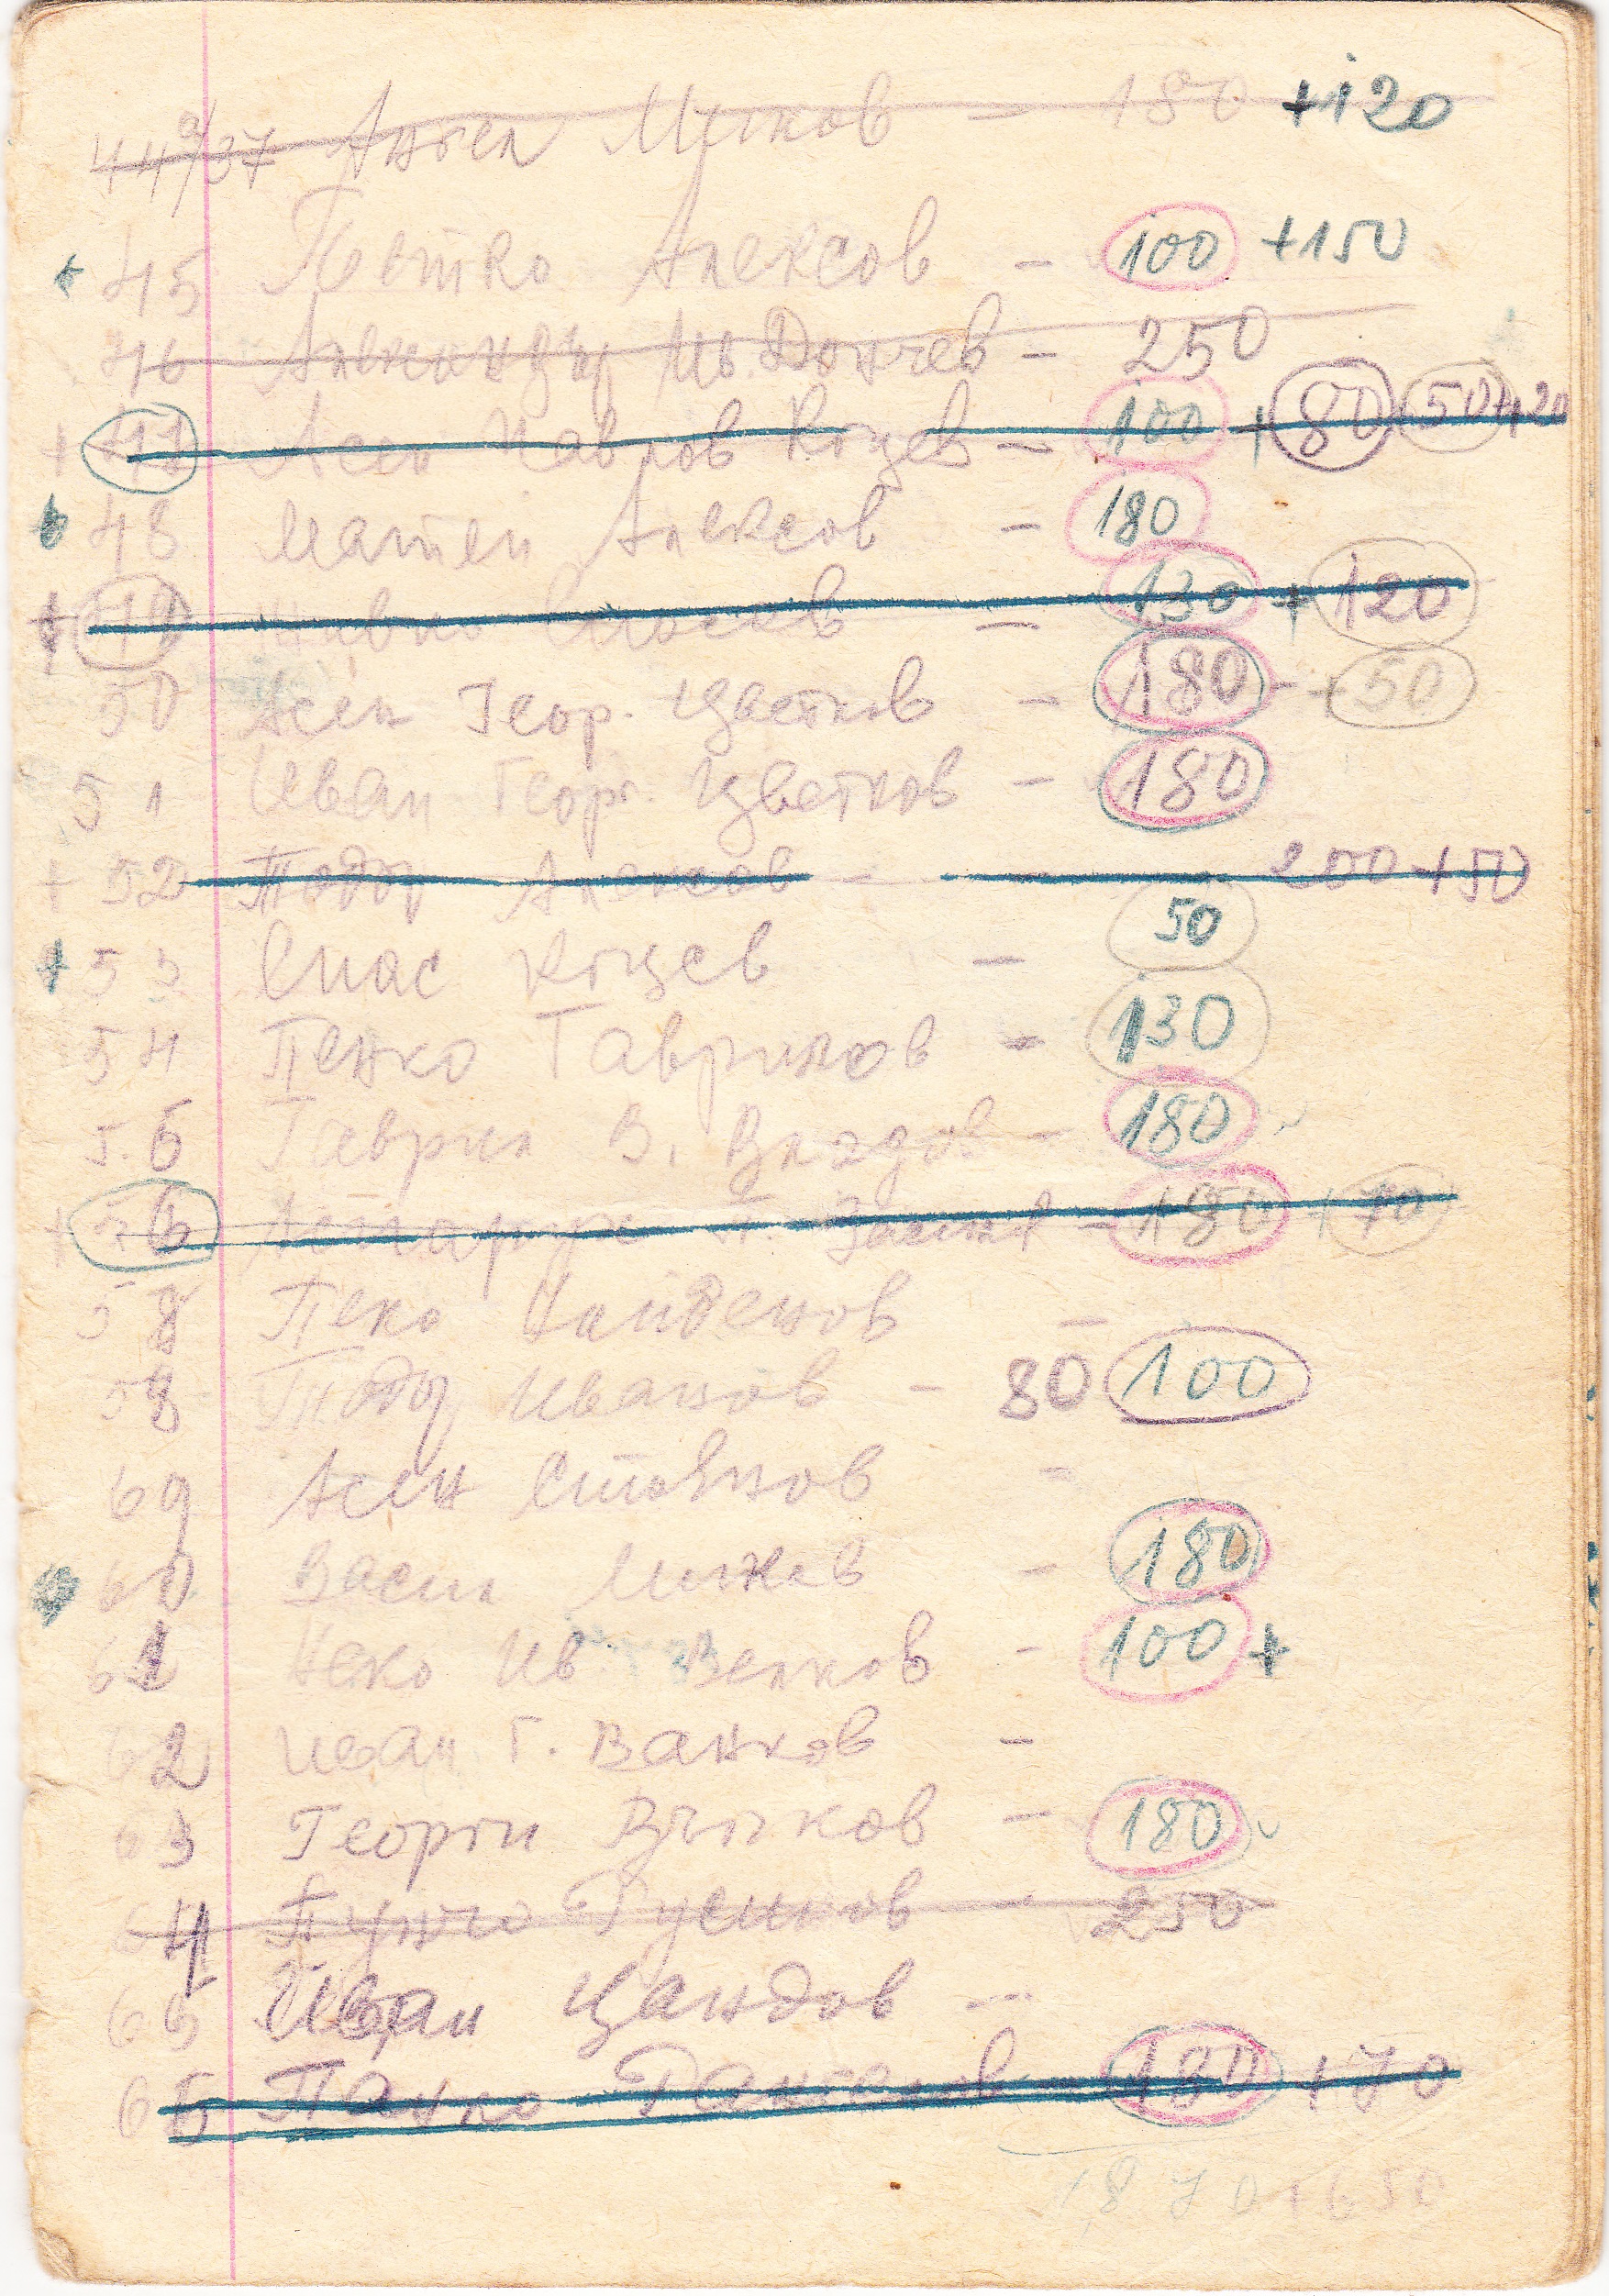 44 а/37 Ангел Мичков - 180 +120
+ 45 Петко Алексов - 100 +150
46 Александър Ив. Дончев - 250
+ 47 Асен Павлов Коцев - 100 + 80 50+20
48 Матей Алексов - 180
+ 49 - 130 + 120
50 Асен Геор. Цветков - 180 - +50
51 Иван Георг. Цветков - 180
+ 52 Тодор Алексов - 200 +50
+ 53 Спас Коцев - 50
54 Пенко Гаврилов - 130
5.6 Гаврил В. Владов - 180
+ 56 - 180 + 70
58 Пеко Найденов -
58 Тодор Иванов - 80 100
69 Асен Стоянов -
60 Васил - 180
61 Неко Ив. Велков - 100 +
62 Иван Г. Ванков -
63 Георги Вълков - 180
64 Пунчо Русинов - 250
65 Иван Цандов -
66 Панко Рангелов - 180 +70
1870 +650